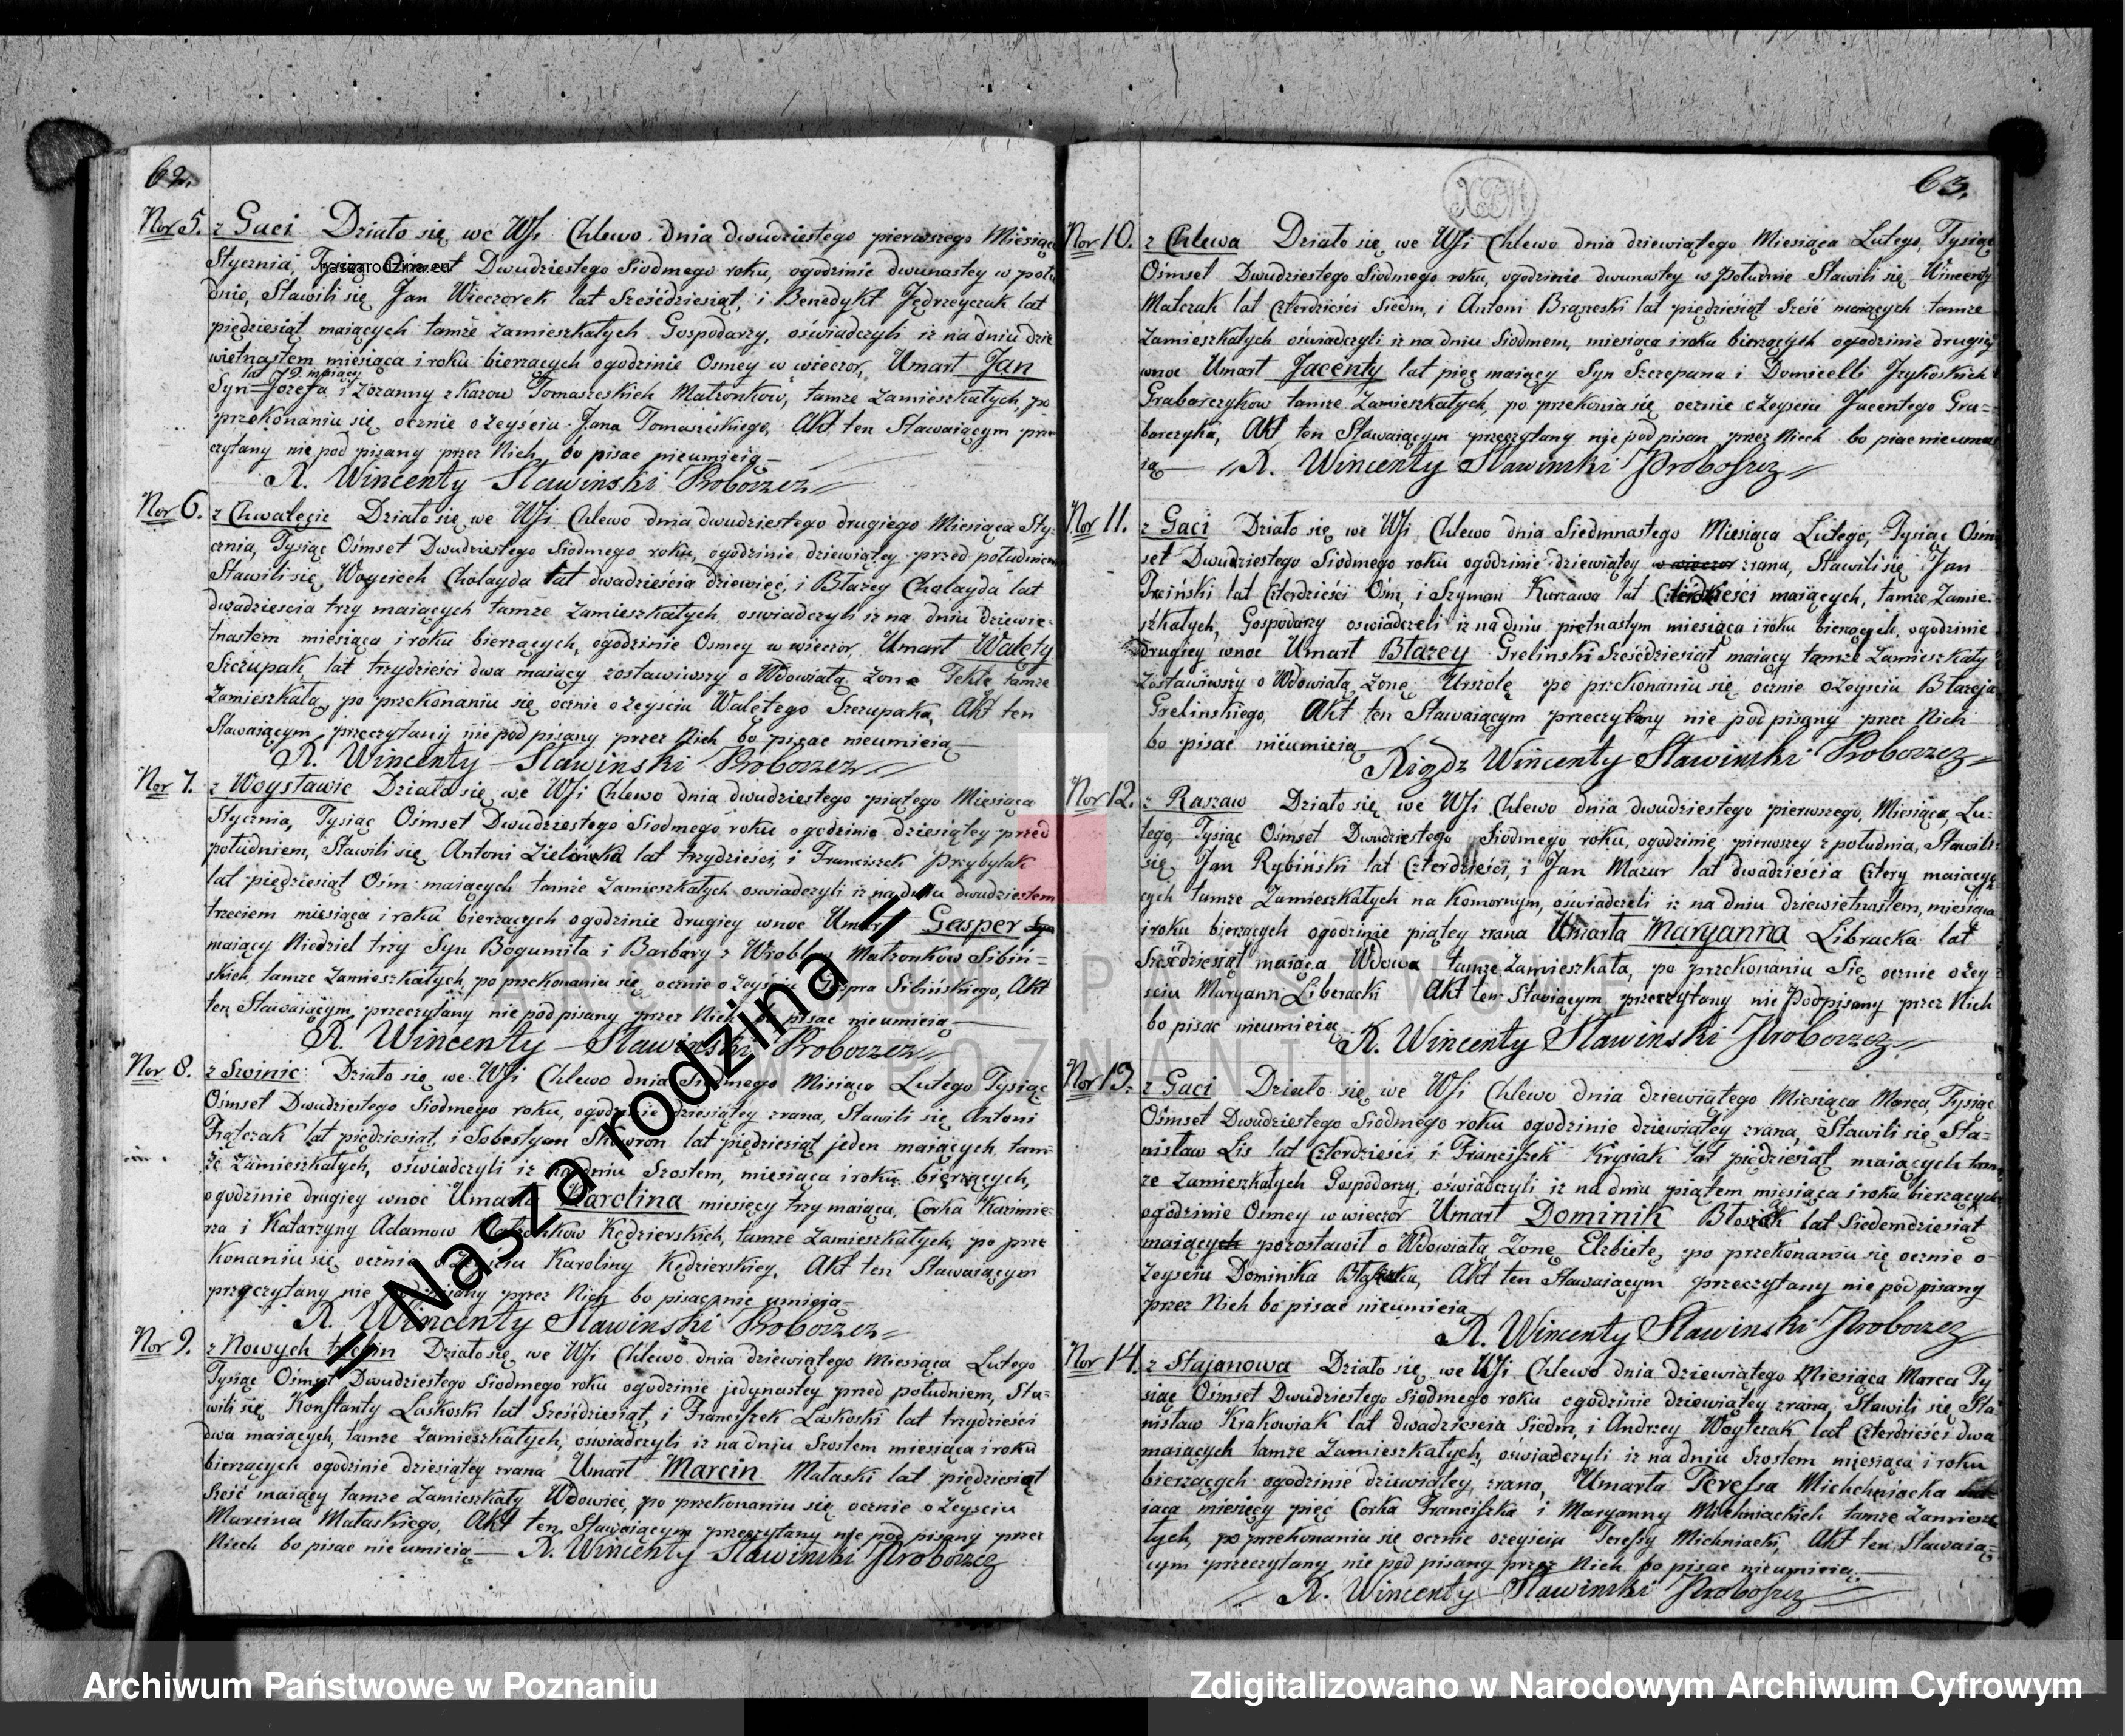 62.
Nor 5. z Gaci Działo się we Wsi Chlewo dnia dwudziestego pierwszego Miesiąca
Stycznia, Tysiąc Ośmset Dwudziestego Siodmego roku, ogodzinie dwunastey w połu
naszarodzina.eu
dnie, Stawili się Jan Wieczorek lat Sześćdziesiąt, i Benedykt Jędrzeyczak lat
piędziesiąt maiących tamże zamieszkałych Gospodarzy, oświadczyli iż na dniu dzie
więtnastem miesiąca i roku bierzących ogodzinie Osmey w wieczor, Umarł Jan
lat 19 maiący
Syn Jozefa i Zozanny z Kazow Tomaszeskich Małzonkow, tamze zamieszkałych, po
przekonaniu się ocznie ozeyściu Jana Tomaszeskiego, Akt ten Stawaiącym prze
czytany nie pod pisany przez Nich bo pisac nieumieią
X. Wincenty Sławinski Proboszcz
Nor 6. z Chwalęcic Działo się we Wsi Chlewo dnia dwudziestego drugiego Miesiąca Sty-
cznia, Tysiąc Ośmset Dwudziestego Siodmego roku, ogodzinie dziewiątey przed południem
Stawili się Woyciech Cholayda lat dwadzieścia dziewięć, i Błażey Cholayda lat
dwadziescia trzy maiących tamze zamieszkałych oswiadczyli iż na dniu dziewię-
tnastem miesiąca i roku bierzących, ogodzinie Osmey w wieczor, Umarł Walęty
Szczupak, lat trzydzieści dwa maiący zostawiwszy o Wdowiałą żonę Teklę tamze
Zamieszkałą, po przekonaniu się ocznie ozeysciu Walętego Szczupaka, Akt ten
Stawaiącym przeczytany nie pod pisany przez Nich bo pisac nieumieią
X. Wincenty Sławinski Proboszcz
Nor 7. z Woysławic Działo się we Wsi Chlewo dnia dwudziestego piątego Miesiąca
Stycznia, Tysiąc Ośmset Dwudziestego Siodmego roku ogodzinie dziesiątey przed
południem, Stawili się Antoni Zielonka lat trzydzieści, i Franciszek Przybylak
lat piędziesiąt Ośm maiących tamże zamieszkałych oswiadczyli iż na dniu dwudziestem
trzeciem miesiąca i roku bierzących ogodzinie drugiey wnoc Umarł Gasper
maiący Niedziel trzy Syn Bogumiła i Barbary z Wroblow Małzonkow Sibiń-
skich, tamze zamieszkałych, po przekonaniu się ocznie o zeyściu Gaspra Sibińskiego, Akt
ten Stawaiącym przeczytany nie pod pisany przez Nich bo pisac nieumieią
X. Wincenty Sławinski Proboszcz
Nor 8. z Swinic Działo się we Wsi Chlewo dnia Siodmego Misiąca Lutego Tysiąc
Ośmset Dwudziestego Siodmego roku, ogodzinie dziesiątey zrana, Stawili się Antoni
Frątczak lat piędziesiąt, i Sobestyan Skowron lat piędziesiąt jeden maiących tam-
że zamieszkałych, oświadczyli iż na dniu Szostem, miesiąca i roku bierzących,
ogodzinie drugiey wnoc Umarła Karolina miesięcy trzy maiąca, Corka Kazimie-
rza i Katarzyny Adamow Małzonkow Kędzierskich, tamze zamieszkałych, po prze
konaniu się ocznie o zeyściu Karoliny Kędzierskiey, Akt ten Stawaiącym
przeczytany nie pod pisany przez Nich bo pisac nie umieią
X. Wincenty Sławinski Proboszcz
Nor 9. z Nowych Działo się we Wsi Chlewo dnia dziewiątego Miesiąca Lutego
Tysiąc Ośmset Dwudziestego Siodmego roku ogodzinie jedynastey przed południem, Sta-
wili się Konstanty Laskoski lat Sześćdziesiąt, i Franciszek Laskoski lat trzydzieści
dwa maiących, tamze zamieszkałych, oświadczyli iż na dniu Szostem miesiąca i roku
bierzących ogodzinie dziesiątey zrana Umarł Marcin Mataski lat piędziesiąt
Sześć maiący tamze zamieszkały Wdowiec, po przekonaniu się ocznie o zeyściu
Marcina Mataskiego, Akt ten Stawaiącym przeczytany nie pod pisany przez
Nich bo pisac nie umieią X. Wincenty Sławinski Proboszcz
63.
Nor 10. z Chlewa Działo się we Wsi Chlewo dnia dziewiątego Miesiąca Lutego, Tysiąc
Ośmset Dwudziestego Siodmego roku, ogodzinie dwunastey w Południe Stawili się Wincenty
Matczak lat Czterdzieści Siedm, i Antoni Brąszeski lat piędziesiąt Sześć maiących tamze
zamieszkałych oświadczyli iż na dniu Siodmem, miesiąca i roku bierzących ogodzinie drugiey
wnoc Umarł Jacenty lat pięc maiący Syn Szczepana i Domicelli Jzykoskich
Grabarczykow tamze zamieszkałych, po przekonia się ocznie ozeysciu Jacentego Gra-
barczyka, Akt ten Stawaiącym przeczytany nie pod pisan przez Niech bo pisac nieumie
ią X. Wincenty Sławinski Proboszcz
Nor 11. z Gaci Działo się we Wsi Chlewo dnia Siedmnastego Miesiąca Lutego, Tysiąc Ośm
set Dwudziestego Siodmego roku ogodzinie dziewiątey w wieczor zrana, Stawili się Jan
Treiński lat Czterdzieści Ośm, i Szyman Kurzawa lat Czterdzieści maiących, tamze Zamie-
szkałych, Gospodarzy oswiadczeli iż na dniu piętnastym miesiąca i roku bierzących, ogodzinie
drugiey wnoc Umarł Błazey Grelinski Sześćdziesiąt maiący tamze zamieszkały
zostawiwszy o Wdowiałą żonę Urszolę po przekonaniu się ocznie ozeysciu Błazeja
Grelinskiego, Akt ten Stawaiącym przeczytany nie pod pisany przez Nich
bo pisac nieumieią Xiądz Wincenty Sławinski Proboszcz
Nor 12. z Raszaw Działo się we Wsi Chlewo dnia dwudziestego pierwszego, Miesiąca, Lu-
tego, Tysiąc Ośmset Dwudziestego Siodmego roku, ogodzinie pierwszey z południa, Stawili
się Jan Rybiński lat Czterdzieści, i Jan Mazur lat dwadzieścia Cztery maiący
cych tamze Zamieszkałych na Komornym, oświadczeli iż na dniu dziewietnastem, miesiąca
i roku bierzących ogodzinie piątey zrana Umarła Maryanna Libracka lat
Sześćdziesiąt maiąca Wdowa tamze zamieszkała, po przekonaniu Się ocznie ozey
sciu Maryann Liberacki Akt ten Stawiącym przeczytany nie Podpisany przez Nich
bo pisac nieumieią X. Wincenty Sławinski Proboszcz
Nor 13. z Gaci Działo się we Wsi Chlewo dnia dziewiątego Miesiąca Marca, Tysiąc
Ośmset Dwudziestego Siodmego roku ogodzinie dziewiątey zrana, Stawili się Sta-
nisław Lis lat Czterdzieści, i Franciszek Krysiak lat piędziesiąt maiących tam
ze zamieszkałych Gospodarzy, oświadczyli iż na dniu piątem miesiąca i roku bierzących
ogodzinie Osmey w wieczor Umarł Dominik lat Siedemdziesiąt
maiących pozostawił o Wdowiałą Zonę Elzbietę, po przekonaniu się ocznie o
zeysciu Dominika Akt ten Stawaiącym przeczytany nie pod pisany
przez Nich bo pisac nieumieią
X. Wincenty Sławinski Proboszcz
Nor 14. z Stajanowa Działo się we Wsi Chlewo dnia dziewiątego Miesiąca Marca Ty
siąc Ośmset Dwudziestego Siodmego roku ogodzinie dziewiątey zrana, Stawili się Sta
nisław Krakowiak lat dwadzieścia Siedm, i Andrzey Woytczak lat Czterdzieści dwa
maiących tamze zamieszkałych, oświadczyli iż na dniu Szostem miesiąca i roku
bierzących ogodzinie dziewiątey zrana, Umarła Teressa Michchniacka
iąca miesięcy pięć Corka Franciszka i Maryanny Michniackich tamze Zamiesz
łych, po przekonania się ocznie ozeyscia Teressy Michniacki, Akt ten Stawaią-
cym przeczytany nie pod pisany przez Nich bo pisac nieumieią
X. Wincenty Sławinski Proboszcz
Nasza rodzina
ARCHIWUM PAŃSTWOWE
W POZNANIU
Archiwum Państwowe w Poznaniu
Zdigitalizowano w Narodowym Archiwum Cyfrowym